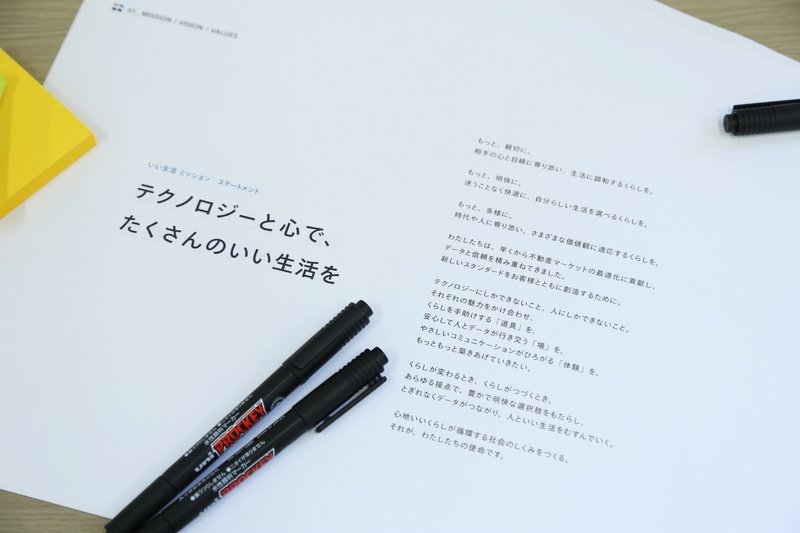 01_ MISSION / VISION / VALUES
いい生活 ミッション・ステートメント
テクノロジーと心で、
たくさんのいい生活を
もっと、親切に。
相手の心と目線に寄り添い、生活に調和するくらしを。
もっと、明快に。
迷うことなく快適に、自分らしい生活を選べるくらしを。
もっと、多様に。
時代や人に寄り添い、さまざまな価値観に適応するくらしを。
わたしたちは、早くから不動産マーケットの最適化に貢献し、
データと信頼を積み重ねてきました。
新しいスタンダードをお客様とともに創造するために。
テクノロジーにしかできないこと、人にしかできないこと。
それぞれの魅力をかけ合わせ、
くらしを手助けする「道具」を、
安心して人とデータが行き交う「場」を、
やさしいコミュニケーションがひろがる「体験」を、
もっともっと築きあげていきたい。
くらしが変わるとき、くらしがつづくとき。
あらゆる接点で、豊かで明快な選択肢をもたらし、
とぎれなくデータがつながり、人といい生活をむすんでいく。
心地いいくらしが循環する社会のしくみをつくる。
それが、わたしたちの使命です。
uni PROCKEY
水性顔料マーカー
●裏うつりしません ●ニオイがありません
PROCKEY
水性顔料マーカー
●裏うつりしません ●ニオイがありません